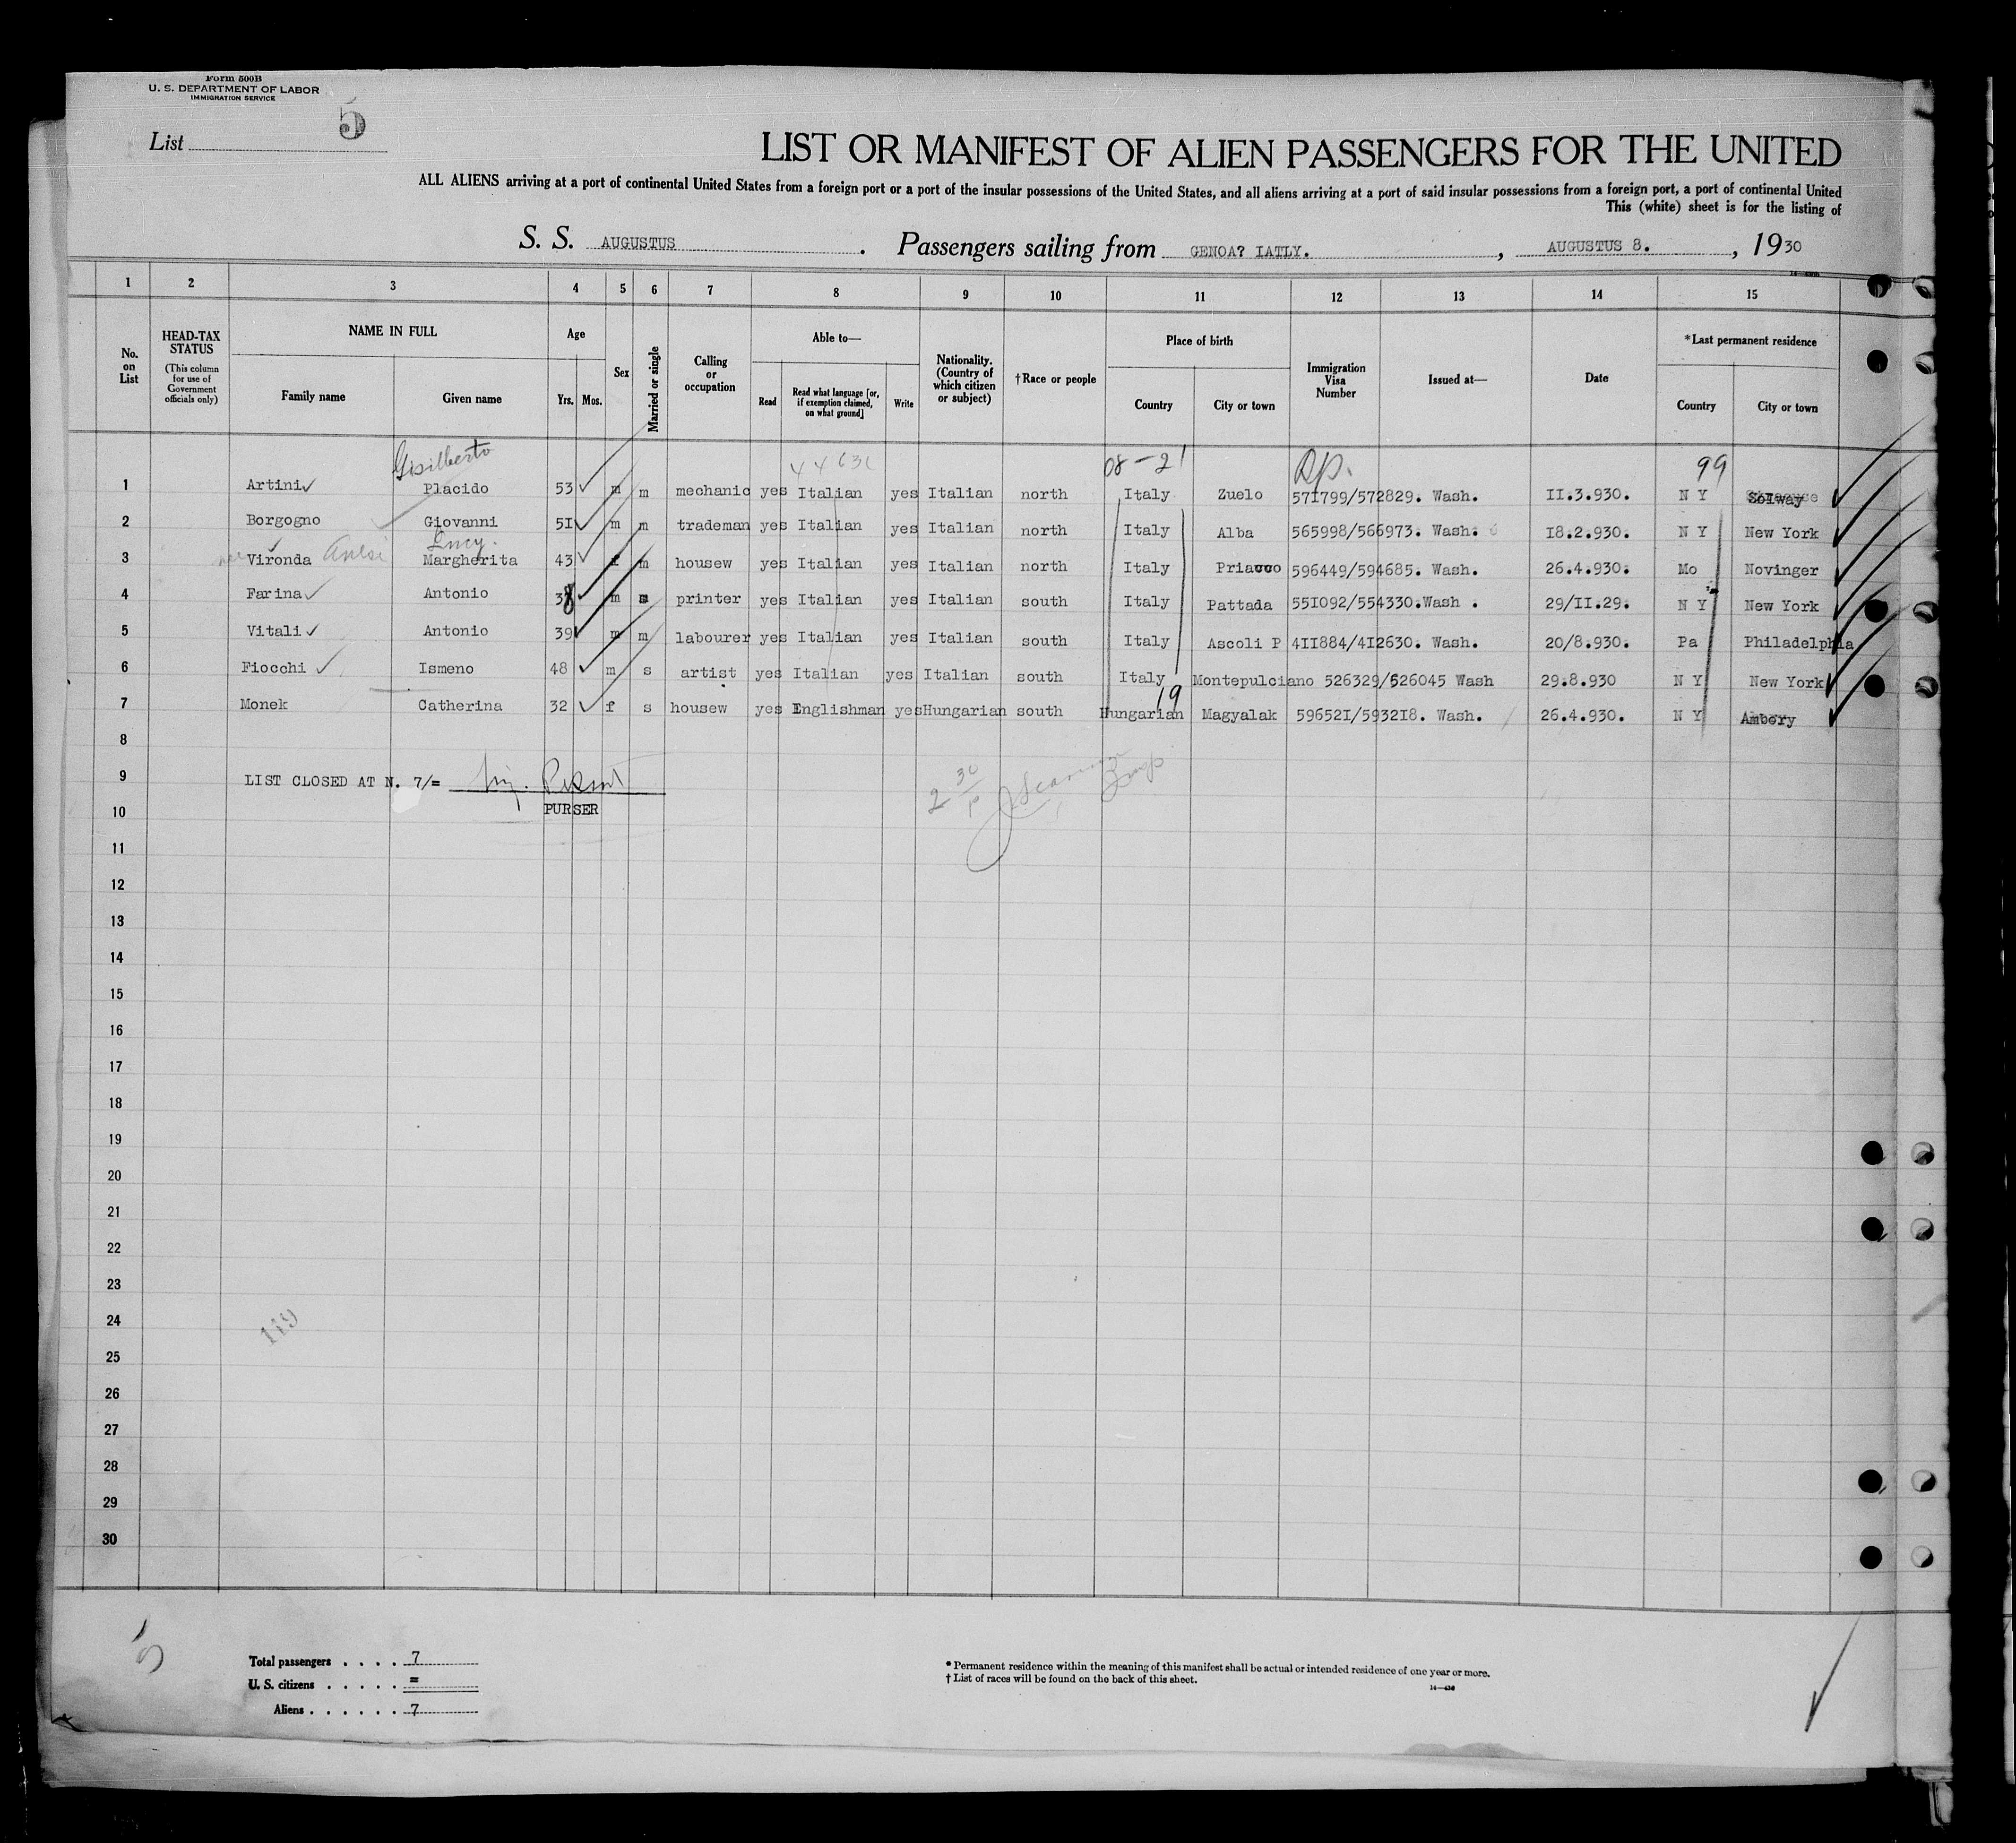 Form 500B
U. S. DEPARTMENT OF LABOR
IMMIGRATION SERVICE
List 5
LIST OR MANIFEST OF ALIEN PASSENGERS FOR THE UNITED
ALL ALIENS arriving at a port of continental United States from a foreign port or a port of the insular possessions of the United States, and all aliens arriving at a port of said insular possessions from a foreign port, a port of continental United
This (white) sheet is for the listing of
S. S. AUGUSTUS . Passengers sailing from GENOA? IATLY. , AUGUSTUS 8. , 1930
1 2 3 4 5 6 7 8 9 10 11 12 13 14 15
No. on List
HEAD-TAX STATUS (This column for use of Government officials only)
NAME IN FULL
Family name Given name
Age
Yrs. Mos.
Sex
Married or single
Calling or occupation
Able to—
Read Read what language [or, if exemption claimed, on what ground] Write
Nationality. (Country of which citizen or subject)
†Race or people
Place of birth
Country City or town
Immigration Visa Number
Issued at—
Date
*Last permanent residence
Country City or town
Gisilberto 08-21 99
1 Artini Placido 53 m m mechanic yes Italian yes Italian north Italy Zuelo 571799/572829. Wash. II.3.930. N Y Solway
2 Borgogno Giovanni 5I m m trademan yes Italian yes Italian north Italy Alba 565998/566973. Wash. I8.2.930. N Y New York
Lucy.
3 Vironda Anesi Margherita 43 f m housew yes Italian yes Italian north Italy Priacco 596449/594685. Wash. 26.4.930. Mo Novinger
4 Farina Antonio 38 m m printer yes Italian yes Italian south Italy Pattada 55I092/554330.Wash . 29/II.29. N Y New York
5 Vitali Antonio 39 m m labourer yes Italian yes Italian south Italy Ascoli P 4II884/4I2630. Wash. 20/8.930. Pa Philadelphia
6 Fiocchi Ismeno 48 m s artist yes Italian yes Italian south Italy Montepulciano 526329/526045 Wash 29.8.930 N Y New York
19
7 Monek Catherina 32 f s housew yes Englishman yes Hungarian south Hungarian Magyalak 59652I/5932I8. Wash. 26.4.930. N Y Ambory
8
9 LIST CLOSED AT N. 7/=
10 PURSER
11
12
13
14
15
16
17
18
19
20
21
22
23
24
25
26
27
28
29
30
119
Total passengers . . . . 7
U. S. citizens . . . . . =
Aliens . . . . . . 7
* Permanent residence within the meaning of this manifest shall be actual or intended residence of one year or more.
† List of races will be found on the back of this sheet.